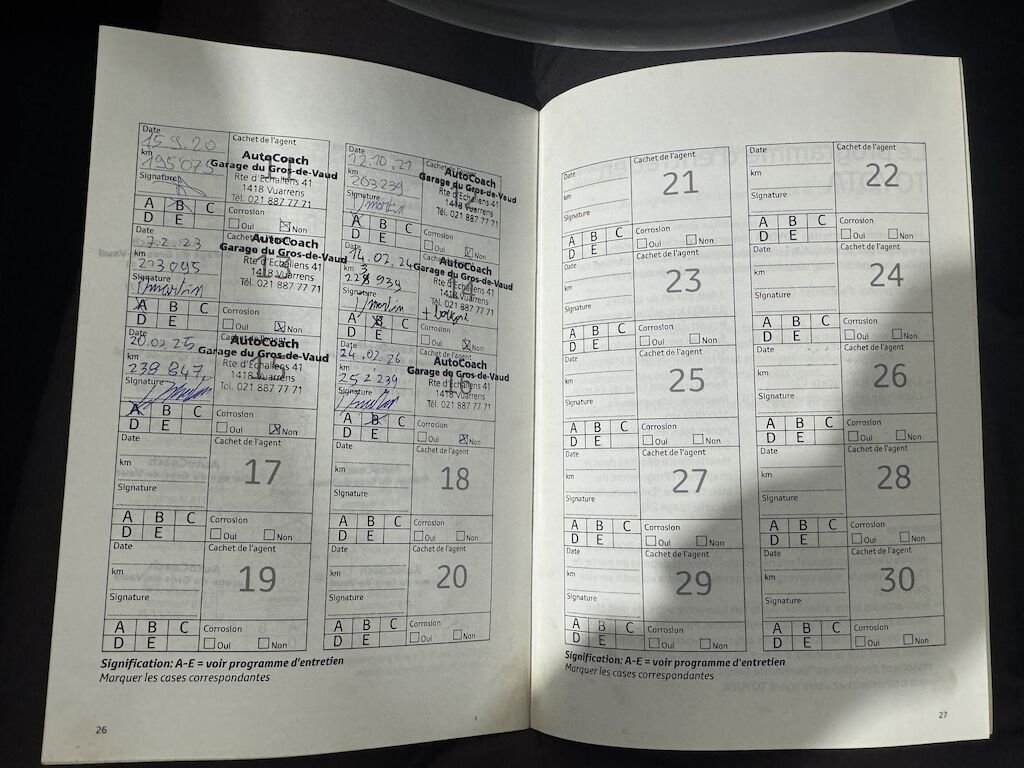 Date
15.9.20
Cachet de l'agent
km
195075
Signature
AutoCoach
Garage du Gros-de-Vaud
Rte d'Echallens 41
1418 Vuarrens
Tél. 021 887 77 71
A B C
D E
Corrosion
Oui Non
Date
12.10.21
Cachet de l'agent
km
203239
Signature
AutoCoach
Garage du Gros-de-Vaud
Rte d'Echallens 41
1418 Vuarrens
Tél. 021 887 77 71
A B C
D E
Corrosion
Oui Non
Date
7.2.23
km
223095
Signature
AutoCoach
Garage du Gros-de-Vaud
Rte d'Echallens 41
1418 Vuarrens
Tél. 021 887 77 71
A B C
D E
Corrosion
Oui Non
14.02.24
km
Signature
AutoCoach
Garage du Gros-de-Vaud
Rte d'Echallens 41
1418 Vuarrens
Tél. 021 887 77 71
A B C
D E
Corrosion
Oui Non
Date
20.02.25
km
238847
Signature
AutoCoach
Garage du Gros-de-Vaud
Rte d'Echallens 41
1418 Vuarrens
Tél. 021 887 77 71
A B C
D E
Corrosion
Oui Non
Date
24.02.26
Cachet de l'agent
km
252239
Signature
AutoCoach
Garage du Gros-de-Vaud
Rte d'Echallens 41
1418 Vuarrens
Tél. 021 887 77 71
A B C
D E
Corrosion
Oui Non
Date
Cachet de l'agent
km
17
Signature
A B C
D E
Corrosion
Oui Non
Date
Cachet de l'agent
km
18
Signature
A B C
D E
Corrosion
Oui Non
Date
Cachet de l'agent
km
19
Signature
A B C
D E
Corrosion
Oui Non
Date
Cachet de l'agent
km
20
Signature
A B C
D E
Corrosion
Oui Non
Signification: A-E = voir programme d'entretien
Marquer les cases correspondantes
26
Date
Cachet de l'agent
km
21
Signature
A B C
D E
Corrosion
Oui Non
Date
Cachet de l'agent
km
22
Signature
A B C
D E
Corrosion
Oui Non
Date
Cachet de l'agent
km
23
Signature
A B C
D E
Corrosion
Oui Non
Date
Cachet de l'agent
km
24
Signature
A B C
D E
Corrosion
Oui Non
Date
Cachet de l'agent
km
25
Signature
A B C
D E
Corrosion
Oui Non
Date
Cachet de l'agent
km
26
Signature
A B C
D E
Corrosion
Oui Non
Date
Cachet de l'agent
km
27
Signature
A B C
D E
Corrosion
Oui Non
Date
Cachet de l'agent
km
28
Signature
A B C
D E
Corrosion
Oui Non
Date
Cachet de l'agent
km
29
Signature
A B C
D E
Corrosion
Oui Non
Date
Cachet de l'agent
km
30
Signature
A B C
D E
Corrosion
Oui Non
Signification: A-E = voir programme d'entretien
Marquer les cases correspondantes
27